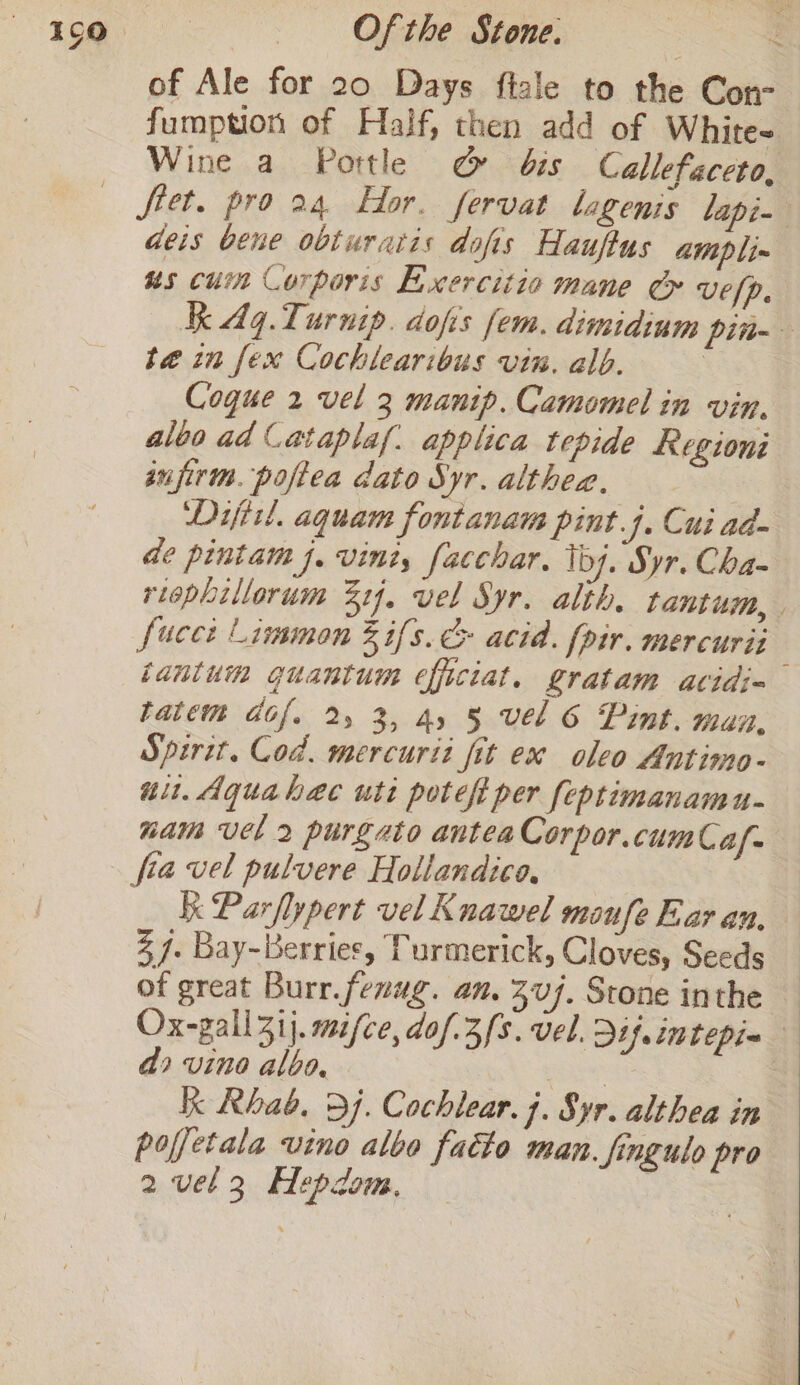 150 Of the Stone.
of Ale for 20 Days ſtale to the Con-
ſumption of Half, then add of White-
Wine a Pottle & bis Callefaceto,
ſtet. pro 24 Hor. ſervat lagenis lapi-
deis bene obturatis doſis Hauſtus ampli-
us cum Corporis Exercitio mane & veſp.
℞ Aq. Turnip. doſis ſem. dimidium pin-
tæ in ſex Cochlearibus vin. alb.
Coque 2 vel 3 manip. Camomel in vin.
albo ad Cataplaſ. applica tepide Regioni
infirm. poſtea dato Syr. altheæ.
Diſtil. aquam fontanam pint. j. Cui ad-
de pintam j. vini, ſacchar. ℔j. Syr. Cha-
riophillorum ℥ij. vel Syr. alth. tantum,
ſucci Limmon ℥iſs. & acid. ſpir. mercurii
tantum quantum efficiat. gratam acidi-
tatem doſ. 2, 3, 4, 5 vel 6 Pint. man.
Spirit. Cod. mercurii fit ex oleo Antimo-
nii. Aqua hæc uti poteſt per ſeptimanam u-
nam vel 2 purgato antea Corpor. cum Caſ-
ſia vel pulvere Hollandico.
℞ Parſlypert vel Knawel mouſe Ear an.
℥j. Bay-Berries, Turmerick, Cloves, Seeds
of great Burr. fenug. an. ʒvj. Stone in the
Ox-gall ʒij. miſce, doſ. ʒſs. vel. ℈ij. in tepi-
do vino albo.
℞ Rhab. ℈j. Cochlear. j. Syr. althea in
poſſetala vino albo facto man. ſingulo pro
2 vel 3 Hepdom.